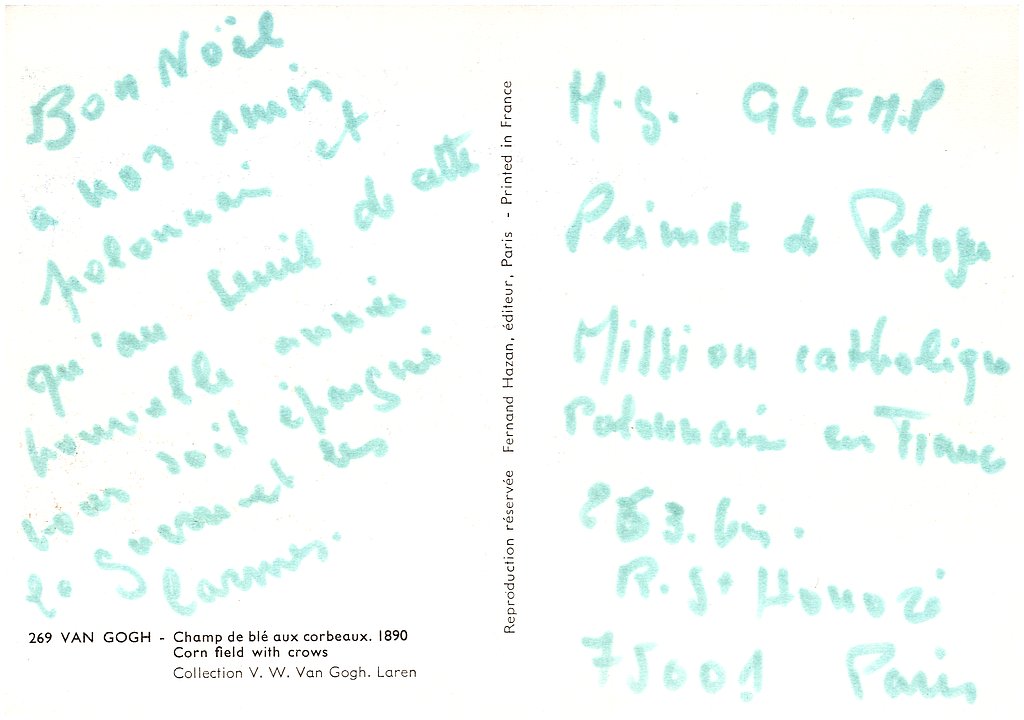 Bon Noël
à nos amis
polonais et
qu'au seuil de cette
nouvelle année
vous soit épargné
le Sang et les
larmes.
269 VAN GOGH - Champ de blé aux corbeaux. 1890
Corn field with crows
Collection V. W. Van Gogh. Laren
Reproduction réservée Fernand Hazan, éditeur, Paris - Printed in France
M.G. GLEMP
Primat de Pologne
Mission catholique
Polonaise en France
263 bis.
R. St Honoré
75001 Paris